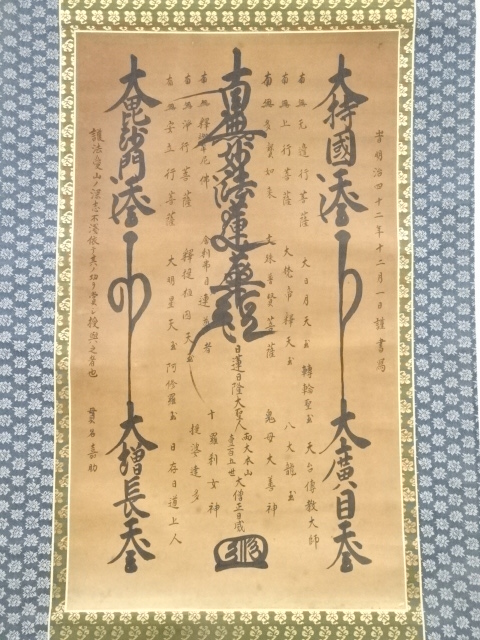 于明治四十二年十二月一日謹書焉
大持國天王
大廣目天王
南無無邊行菩薩
大日月天王
轉輪聖王
天台傳教大師
南無上行菩薩
大梵帝釋天王
八大龍王
南無多寶如來
文殊普賢菩薩
鬼母大善神
南無妙法蓮華經
日蓮日隆大聖人
両大本山
大僧正日咸
南無釋迦牟尼佛
舎利弗目連尊者
十羅刹女神
南無淨行菩薩
釋提桓因天王
提婆達多
南無安立行菩薩
大明星天王
阿修羅王
日存日道上人
大毘沙門天王
大増長天王
授與之者也